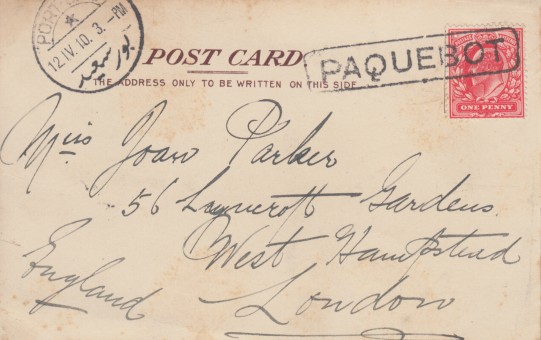 PORT
12.IV.10.3.-PM
بور سعيد
POST CARD
PAQUEBOT
THE ADDRESS ONLY TO BE WRITTEN ON THIS SIDE
ONE PENNY
Miss Joan Parker
56 Lyncroft Gardens
West Hampstead
London
England